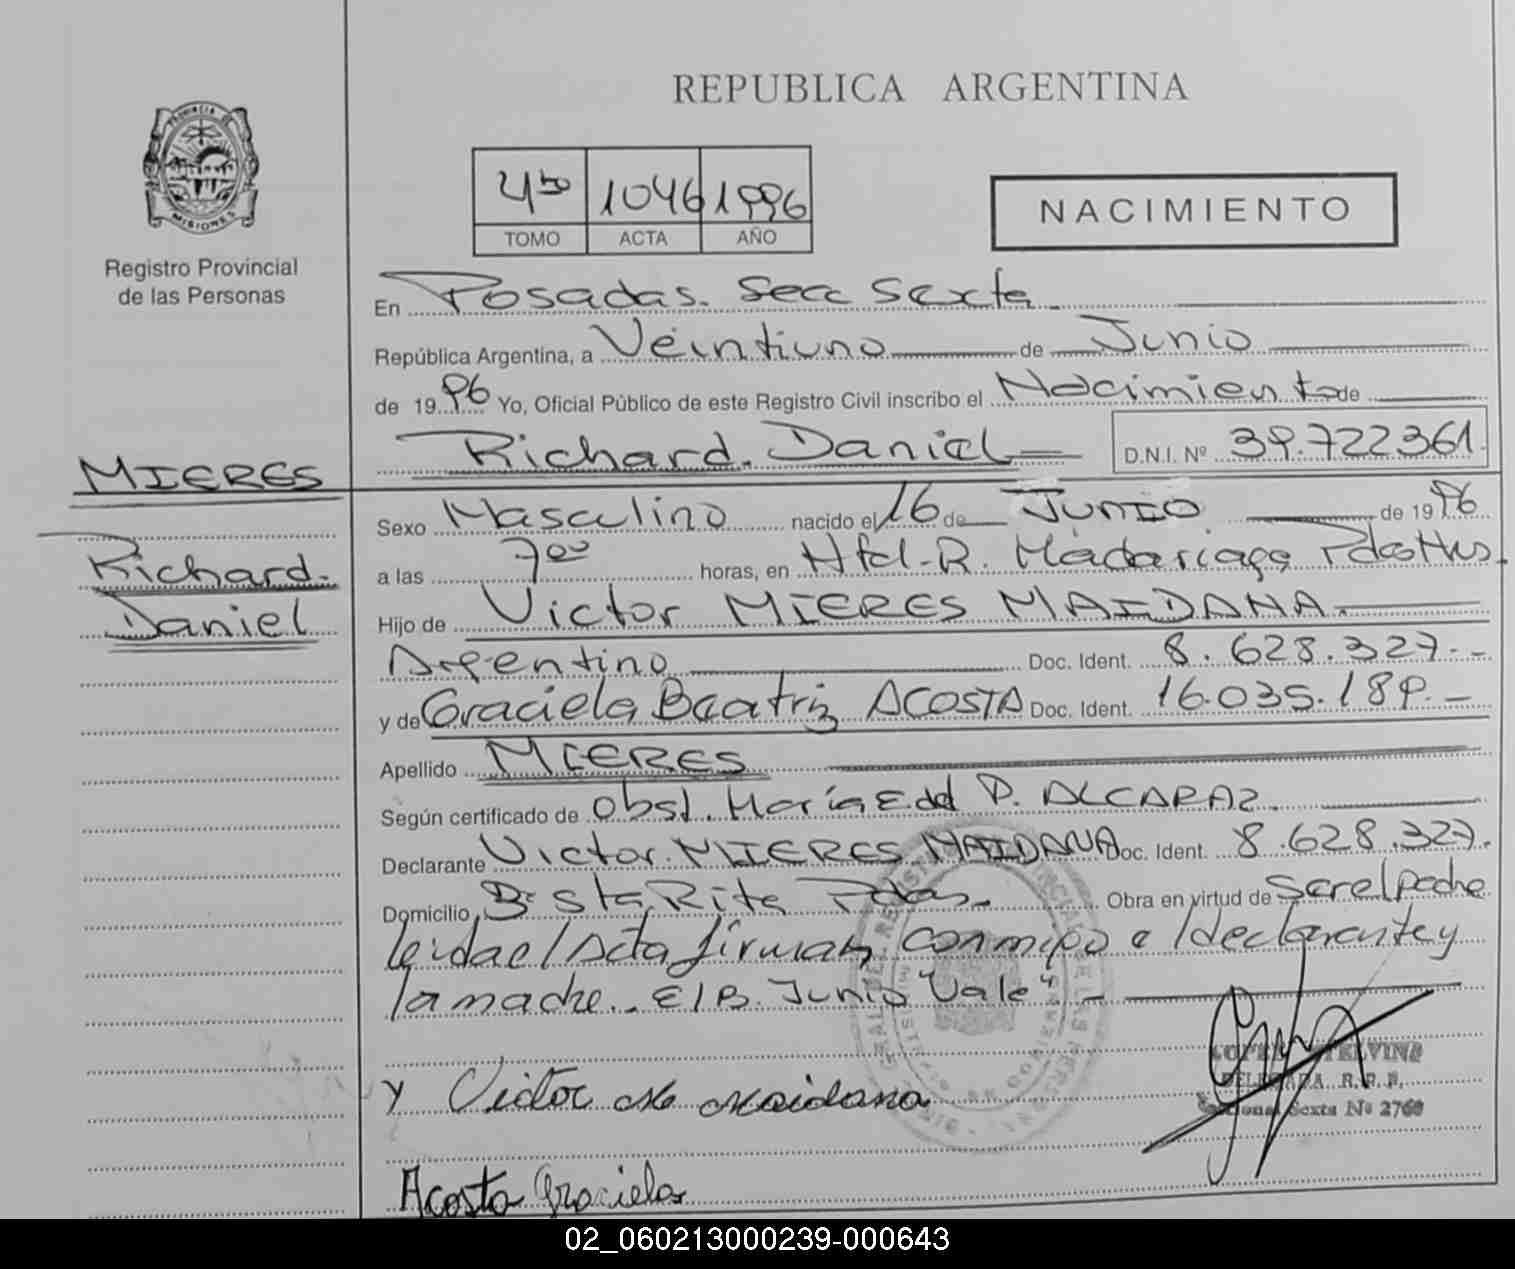 REPUBLICA ARGENTINA
PROVINCIA DE
MISIONES
Registro Provincial
de las Personas
4to 1046 1996
TOMO ACTA AÑO
NACIMIENTO
En Posadas. Secc Sexta
República Argentina, a Veintiuno de Junio
de 1996 Yo, Oficial Público de este Registro Civil inscribo el Nacimiento de
Richard. Daniel D.N.I. Nº 39.722361.
MIERES
Richard.
Daniel
Sexo Masculino nacido el 16 de JUNIO de 1996
a las 7 horas, en R. Madariaga Pdas
Hijo de Victor MIERES MAIDANA.
Argentino Doc. Ident. 8.628.327.-
y de Graciela Beatriz ACOSTA Doc. Ident. 16.035.189.-
Apellido MIERES
Según certificado de obst. María E. del P. ALCARAZ.
Declarante Victor MIERES MAIDANA Doc. Ident. 8.628.327.
Domicilio Bº Sta Rita Pdas.- Obra en virtud de Ser el padre
leida el Acta firman conmigo el declarante y
la madre.. E/B. Junio "Vale" -
LOPEZ ETELVINA
DELEGADA R.P.P.
Seccional Sexta Nº 2760
y Victor M maidana
Acosta Graciela
02_060213000239-000643